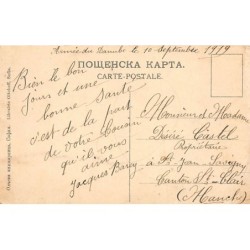 Armée du Danube le 10 Septembre 1919
ПОЩЕНСКА КАРТА.
CARTE-POSTALE.
Bien le bon
jour et une
bonne Santé
c'est de la part
de votre Cousin
qu'il vous
aime
Jacques Barry
Monsieur et Madame
Désiré Castel
Propriétaire
à St Jean Savigny
Canton St Clair
(Manche)